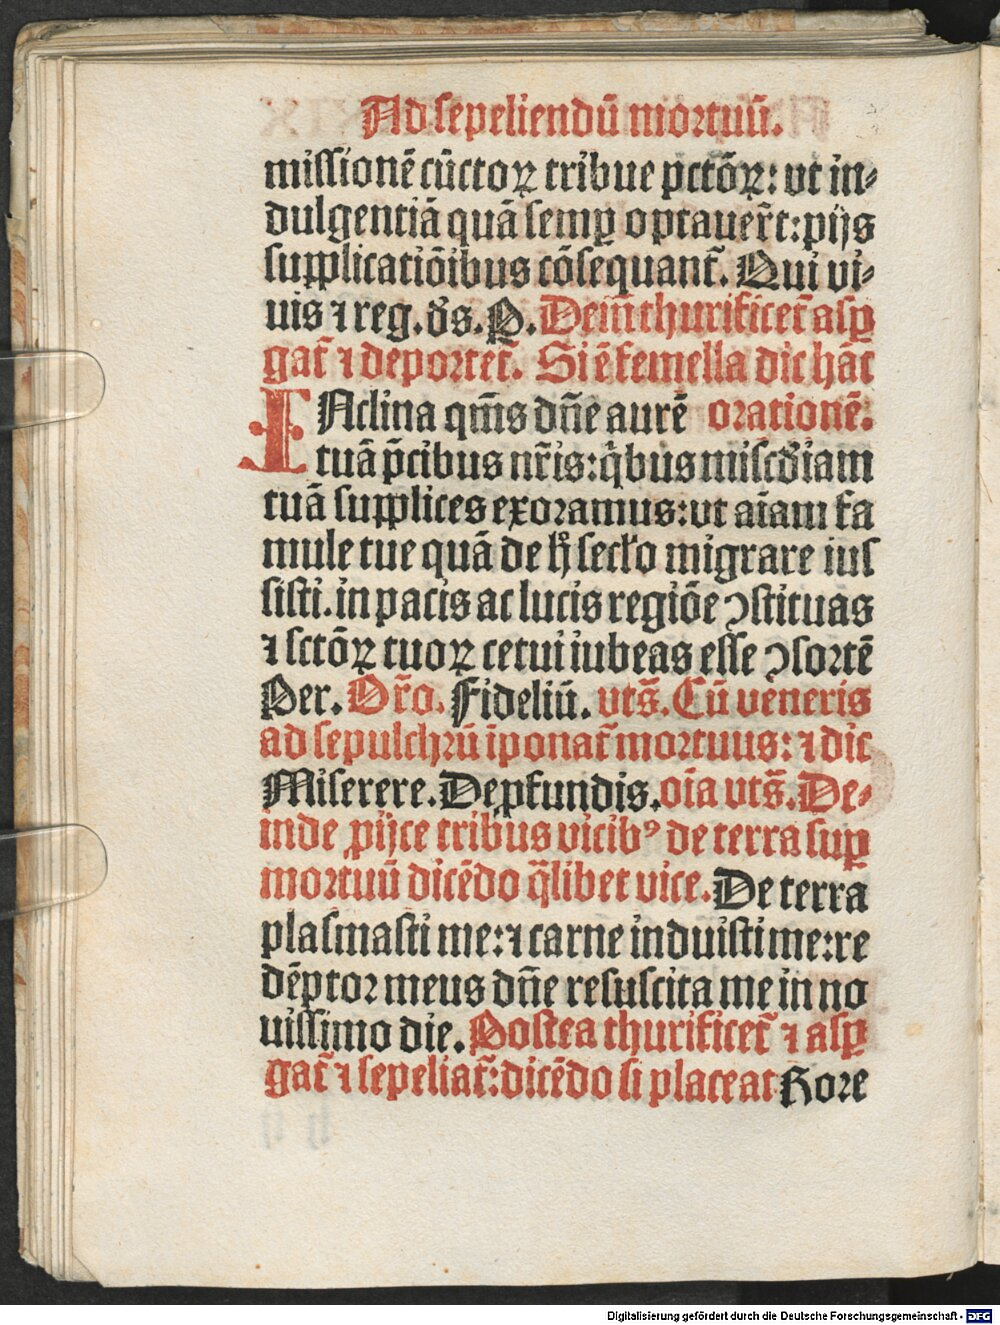 Ad sepeliendū mortuū.
missionē cūctoꝝ tribue pctōꝝ: vt in⸗
dulgentiā quā semꝑ optauer̄t: pijs
supplicatiōibus cōsequant᷑. Qui vi⸗
uis ⁊ reg. ds̄. P. Dein̄ thurificet᷑ aspꝑ
gat᷑ ⁊ deportet᷑. Si ē femella dic hāc
INclina qm̄s dn̄e aurē orationē.
tuā p̄cibus nr̄is: qͥbus misc̄diam
tuā supplices exoramus: vt aīam fa
mule tue quā de hͦ sec̄lo migrare ius
sisti. in pacis ac lucis regiōe ꝯstituas
⁊ sctōꝝ tuoꝝ cetui iubeas esse ꝯsortē
Per. Or̄o. Fideliū. vts̄. Cū veneris
ad sepulchrū īponat᷑ mortuus: ⁊ dic
Miserere. De ꝓfundis. oīa vts̄. De⸗
inde ꝓijce tribus vicibꝰ de terra suꝑ
mortuū dicēdo qͣlibet vice. De terra
plasmasti me: ⁊ carne induisti me: re
dēptor meus dn̄e resuscita me in no
uissimo die. Postea thurificet᷑ ⁊ asꝑ
gat᷑ ⁊ sepeliat᷑: dicēdo si placeat Rore
Digitalisierung gefördert durch die Deutsche Forschungsgemeinschaft - DFG